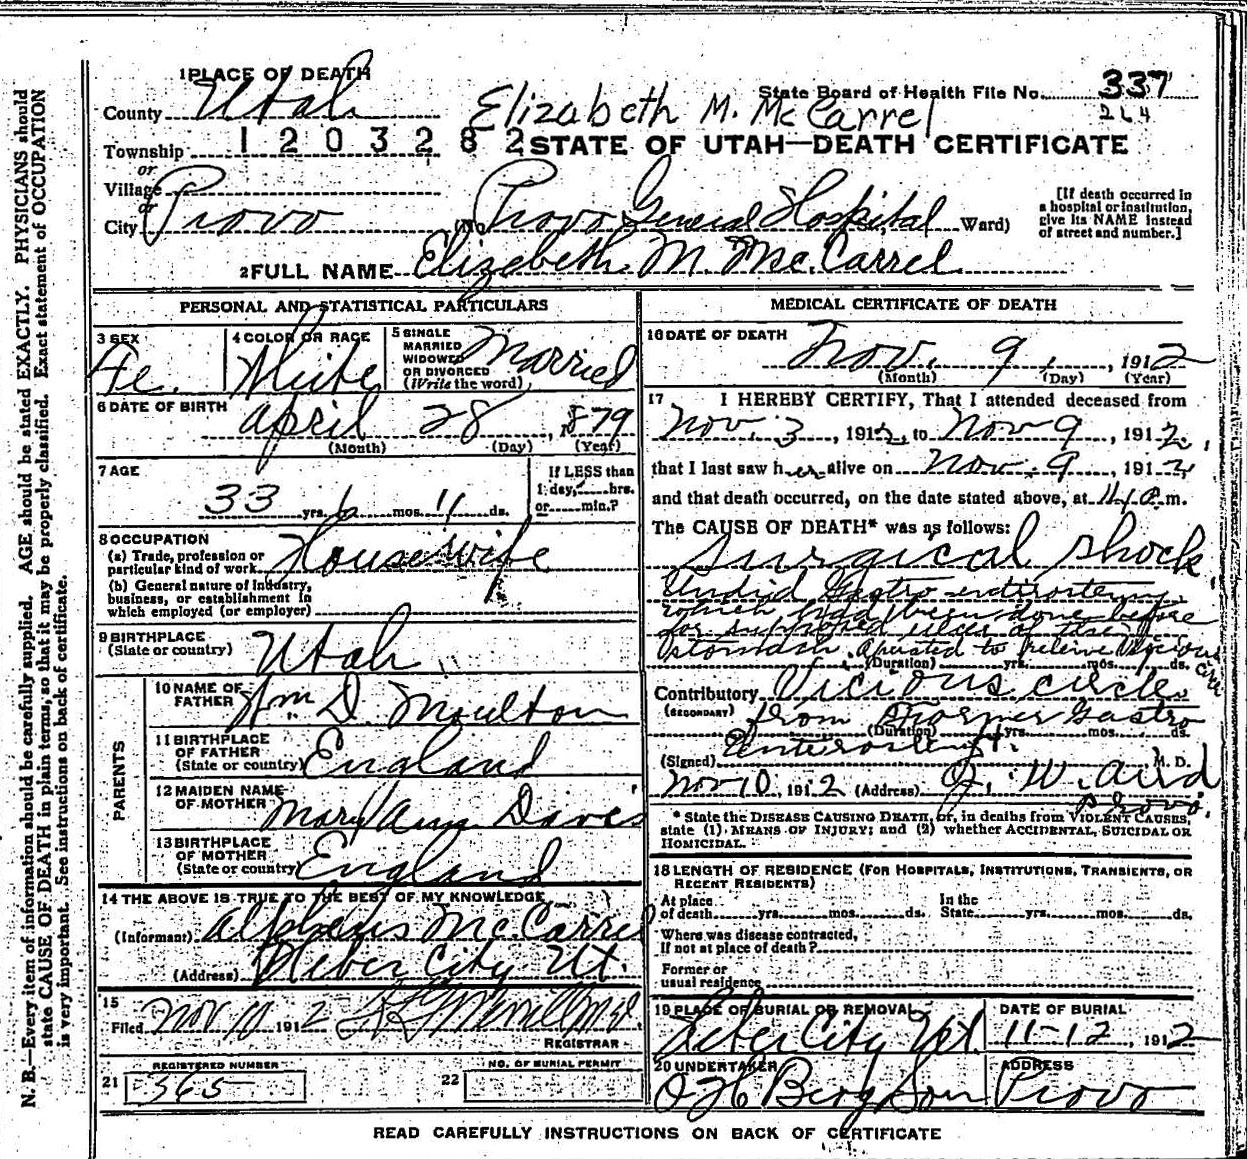 1 PLACE OF DEATH
County Utah
State Board of Health File No. 337
264
Elizabeth M. McCarrel
Township 1203282
STATE OF UTAH—DEATH CERTIFICATE
or
Village
or
City Provo
(No. Provo General Hospital St., Ward)
[If death occurred in a hospital or institution, give its NAME instead of street and number.]
2 FULL NAME Elizabeth. M. Mc.Carrel.
PERSONAL AND STATISTICAL PARTICULARS
3 SEX
Fe.
4 COLOR OR RACE
White
5 SINGLE MARRIED WIDOWED OR DIVORCED (Write the word)
Married
6 DATE OF BIRTH
April 28, 1879
(Month) (Day) (Year)
7 AGE
33 yrs. 6 mos. 11 ds.
If LESS than 1 day, hrs. or min.?
8 OCCUPATION
(a) Trade, profession or particular kind of work Housewife
(b) General nature of Industry, business, or establishment in which employed (or employer)
9 BIRTHPLACE
(State or country) Utah
PARENTS
10 NAME OF FATHER Wm. D. Moulton
11 BIRTHPLACE OF FATHER (State or country) England
12 MAIDEN NAME OF MOTHER Mary Ann Davis
13 BIRTHPLACE OF MOTHER (State or country) England
14 THE ABOVE IS TRUE TO THE BEST OF MY KNOWLEDGE
(Informant) Alpheus Mc.Carrel
(Address) Heber City Ut.
15
Filed Nov 11 1912
REGISTRAR
REGISTERED NUMBER
21 365
NO. OF BURIAL PERMIT
22
MEDICAL CERTIFICATE OF DEATH
16 DATE OF DEATH
Nov. 9, 1912
(Month) (Day) (Year)
17 I HEREBY CERTIFY, That I attended deceased from
Nov. 3, 1912, to Nov 9, 1912,
that I last saw her alive on Nov. 9, 1912,
and that death occurred, on the date stated above, at m.
The CAUSE OF DEATH* was as follows:
Surgical Shock
Undid Gastro enterostomy
which had been done before
for supposed ulcer of the
stomach. Operated to relieve Vicious circle
(Duration) yrs. mos. ds.
Contributory Vicious circle
(SECONDARY) from former Gastro
(Duration) yrs. mos. ds.
Enterostomy.
(Signed) J. W. Aird M. D.
Nov 10, 1912 (Address) Provo.
* State the DISEASE CAUSING DEATH, or, in deaths from VIOLENT CAUSES, state (1) MEANS OF INJURY; and (2) whether ACCIDENTAL, SUICIDAL OR HOMICIDAL.
18 LENGTH OF RESIDENCE (FOR HOSPITALS, INSTITUTIONS, TRANSIENTS, OR RECENT RESIDENTS)
At place of death yrs. mos. ds. In the State yrs. mos. ds.
Where was disease contracted, If not at place of death?
Former or usual residence
19 PLACE OF BURIAL OR REMOVAL
Heber City Ut.
DATE OF BURIAL
11-12, 1912
20 UNDERTAKER
O H Berg Son
ADDRESS
Provo
READ CAREFULLY INSTRUCTIONS ON BACK OF CERTIFICATE
N. B.—Every item of information should be carefully supplied. AGE should be stated EXACTLY. PHYSICIANS should
state CAUSE OF DEATH in plain terms, so that it may be properly classified. Exact statement of OCCUPATION
is very important. See instructions on back of certificate.